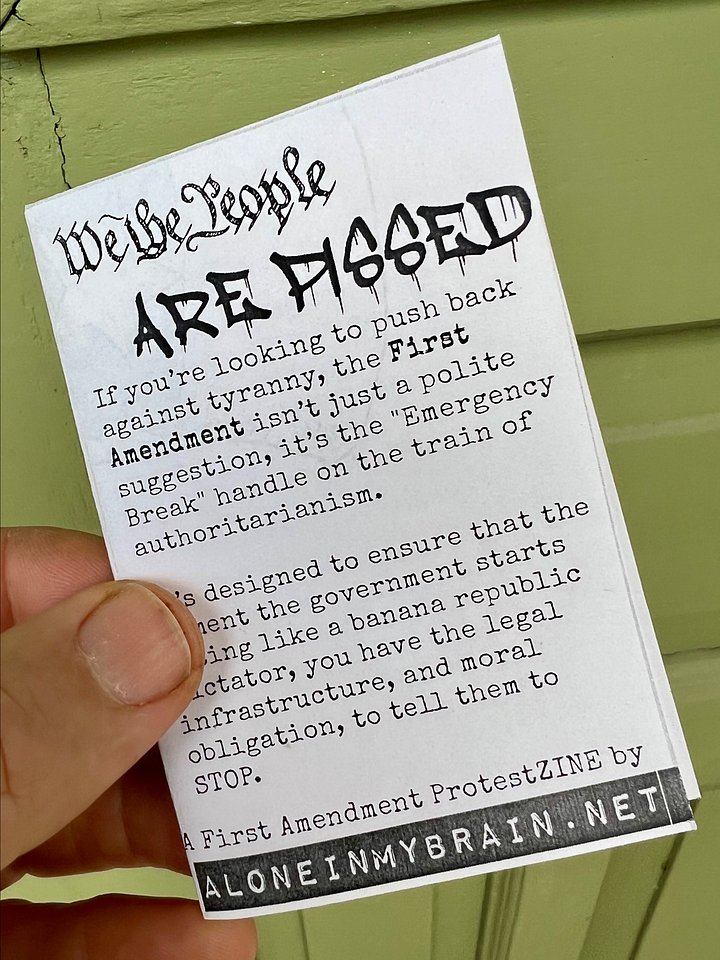 We the People
ARE PISSED
If you're looking to push back
against tyranny, the First
Amendment isn't just a polite
suggestion, it's the "Emergency
Break" handle on the train of
authoritarianism.
's designed to ensure that the
ment the government starts
ting like a banana republic
ictator, you have the legal
infrastructure, and moral
obligation, to tell them to
STOP.
A First Amendment ProtestZINE by
ALONEINMYBRAIN.NET